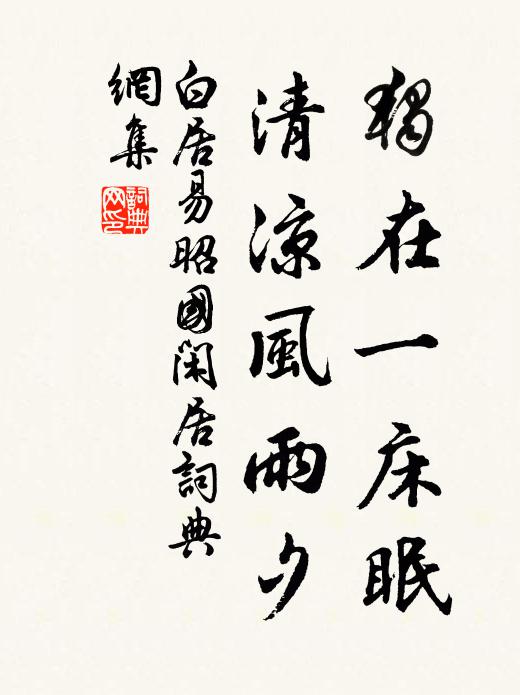 獨在一床眠
清涼風雨夕
白居易昭國閑居詞典
網集
詞典网印